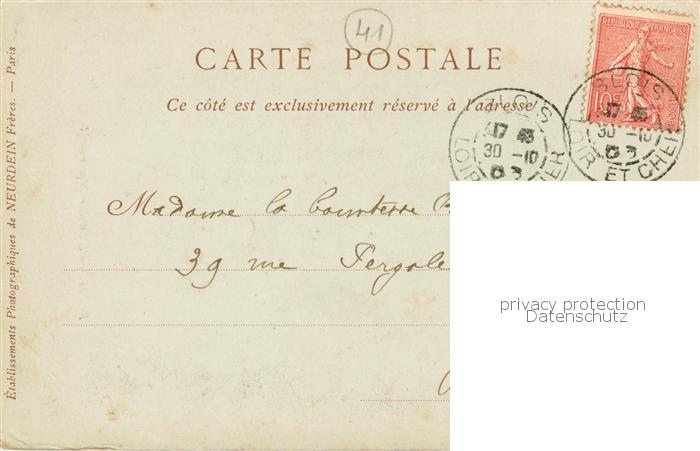 41
CARTE POSTALE
Ce côté est exclusivement réservé à l'adresse
RÉPUBLIQUE FRANÇAISE
10
BLOIS
17 45
30 -10
03
LOIR ET CHER
BLOIS
17 45
30 -10
03
LOIR ET CHER
Madame la Comtesse
39 rue Pergole
privacy protection
Datenschutz
Établissements Photographiques de NEURDEIN Frères. — Paris